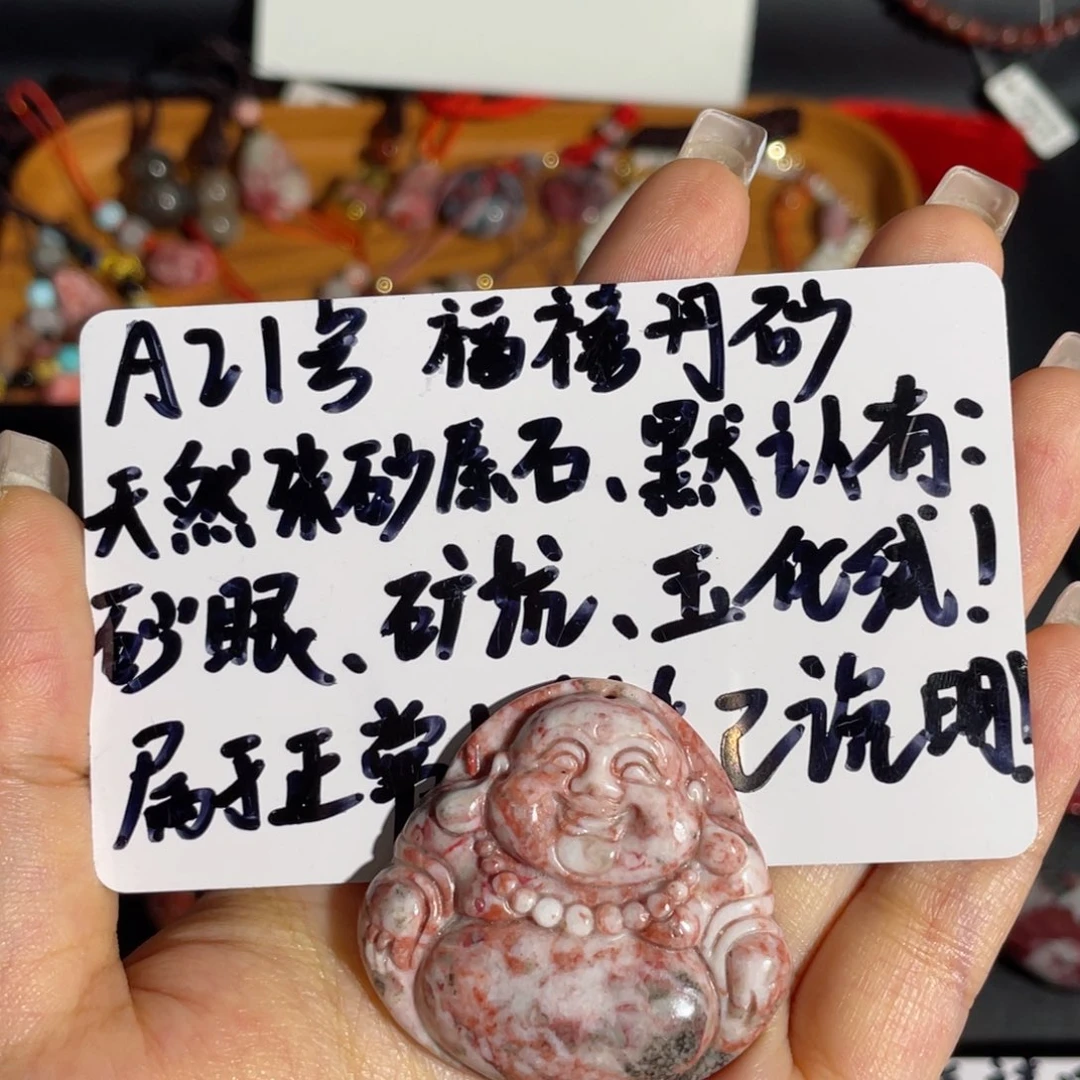 A21号 福禧丹砂
天然朱砂原石、默认有:
砂眼、矿坑、玉化线!
属于正常 已说明!